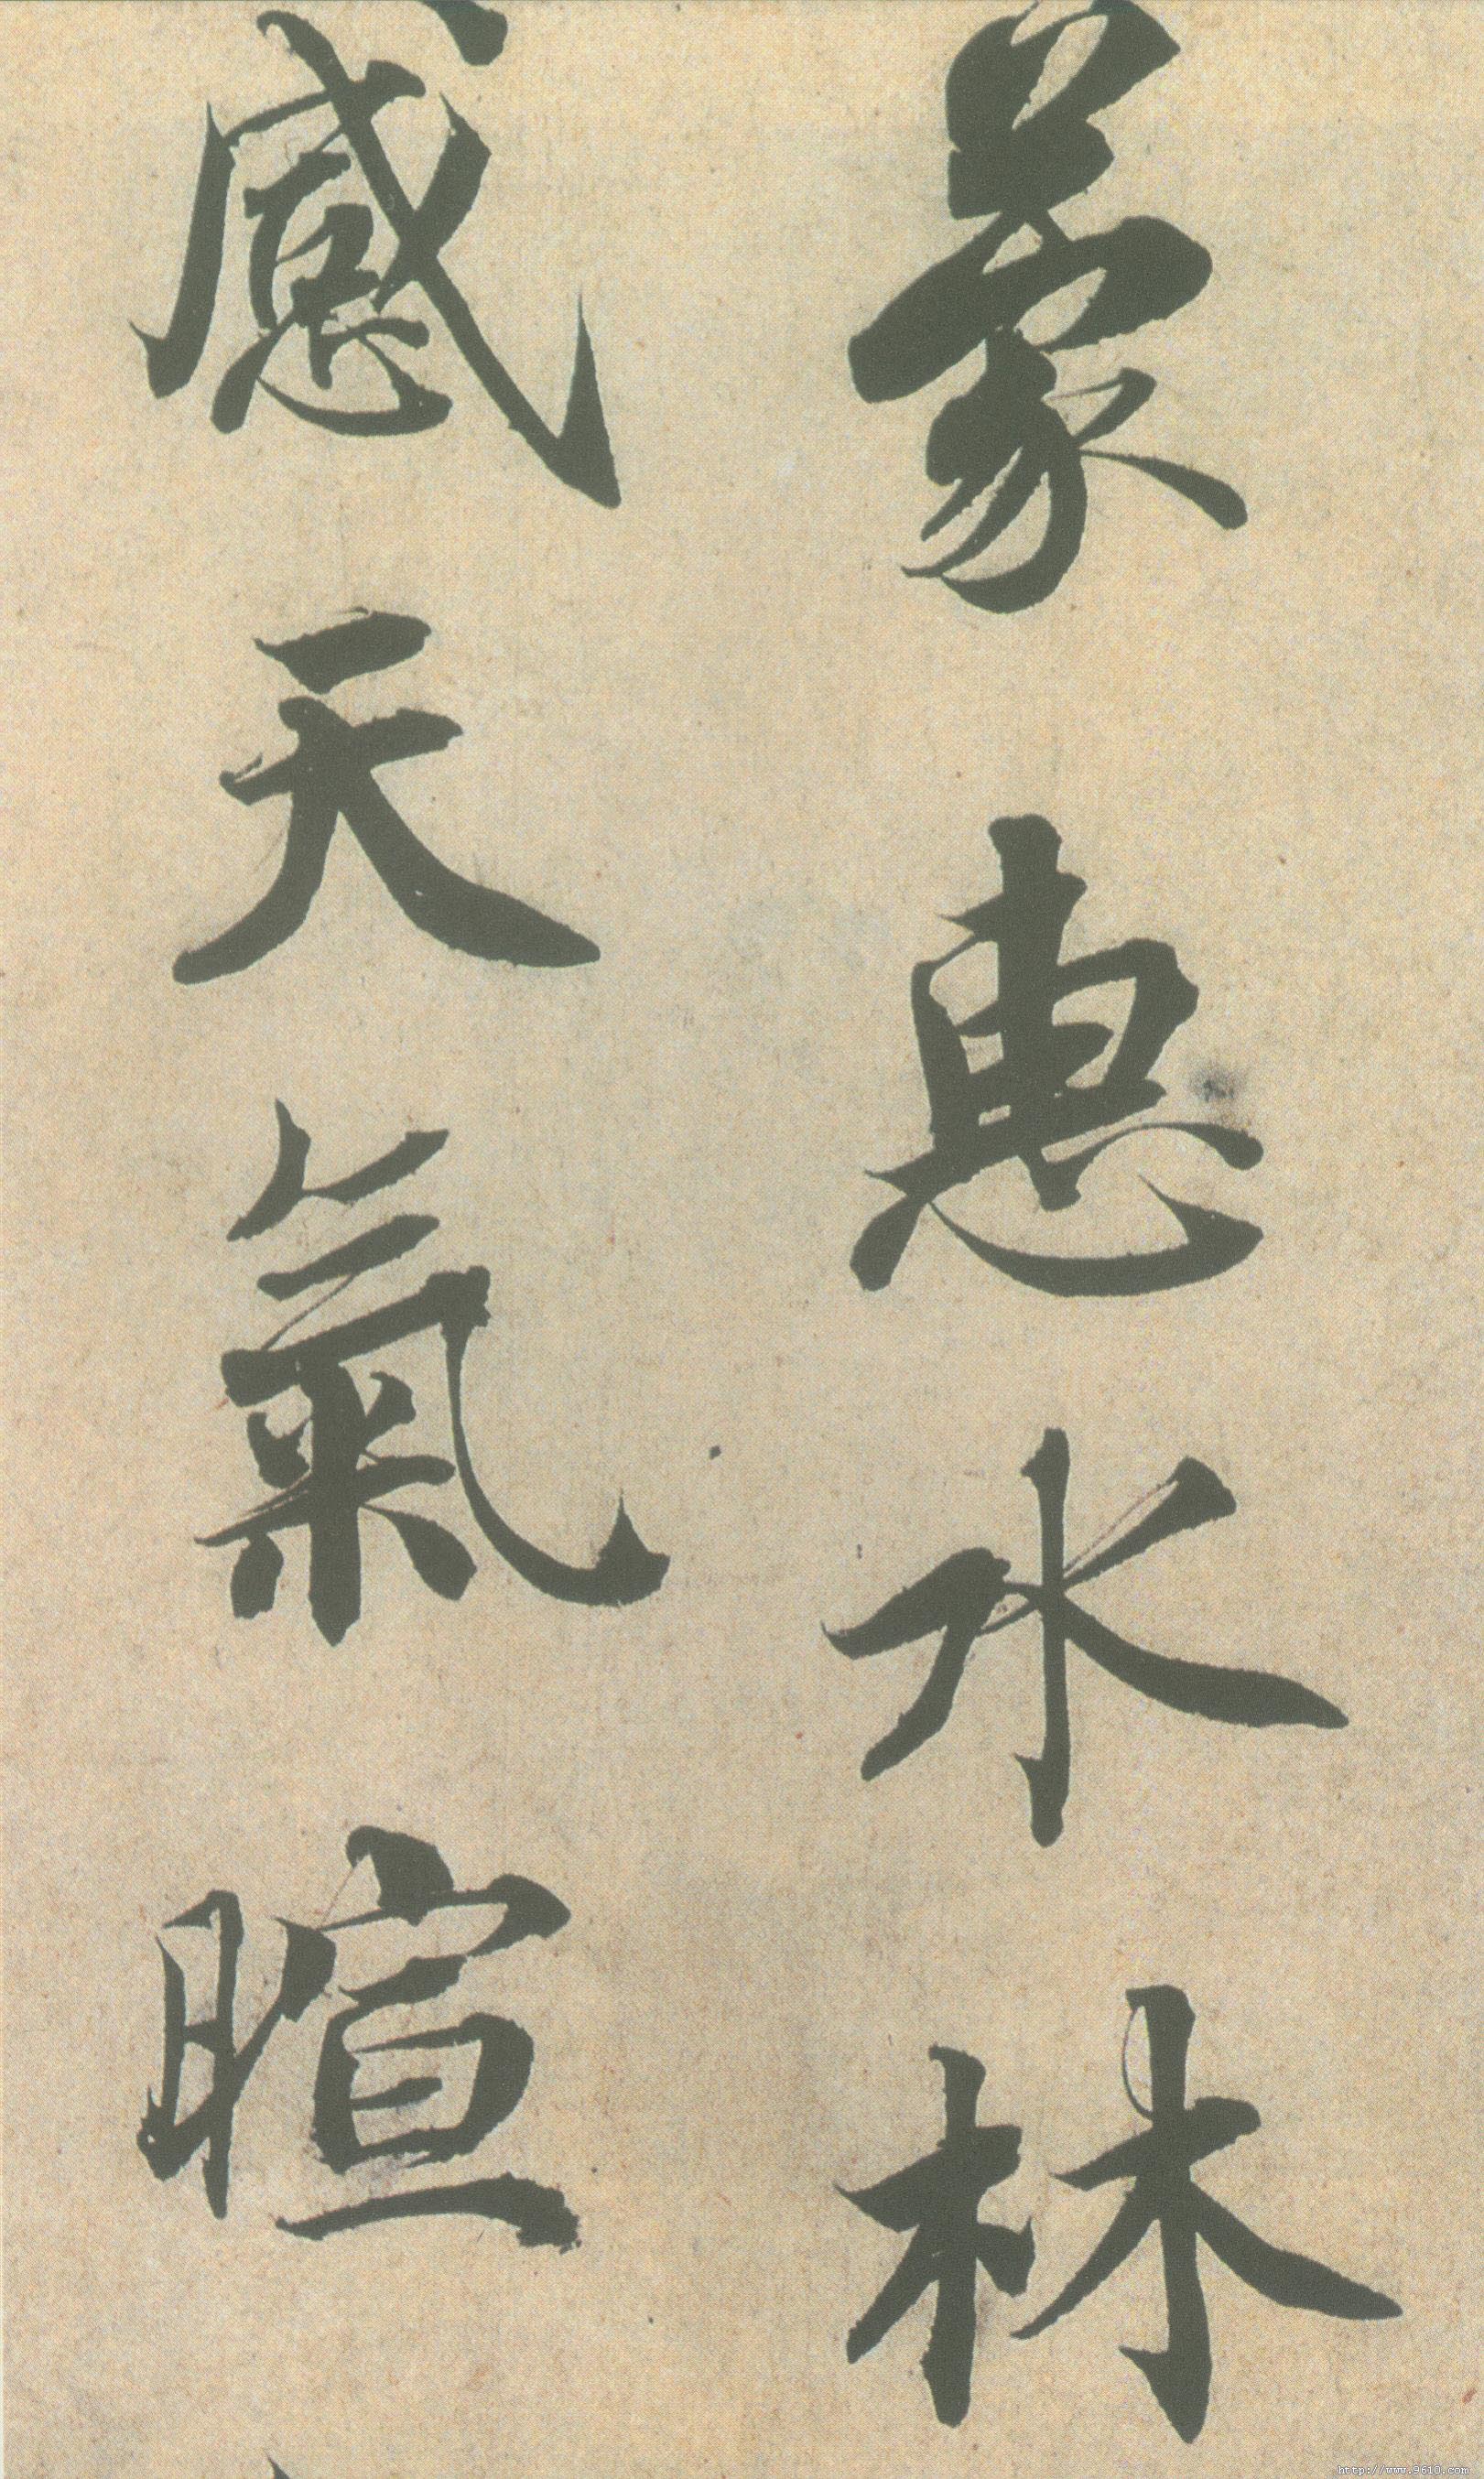 蒙惠水林
感天氣暄
http://www.9610.com